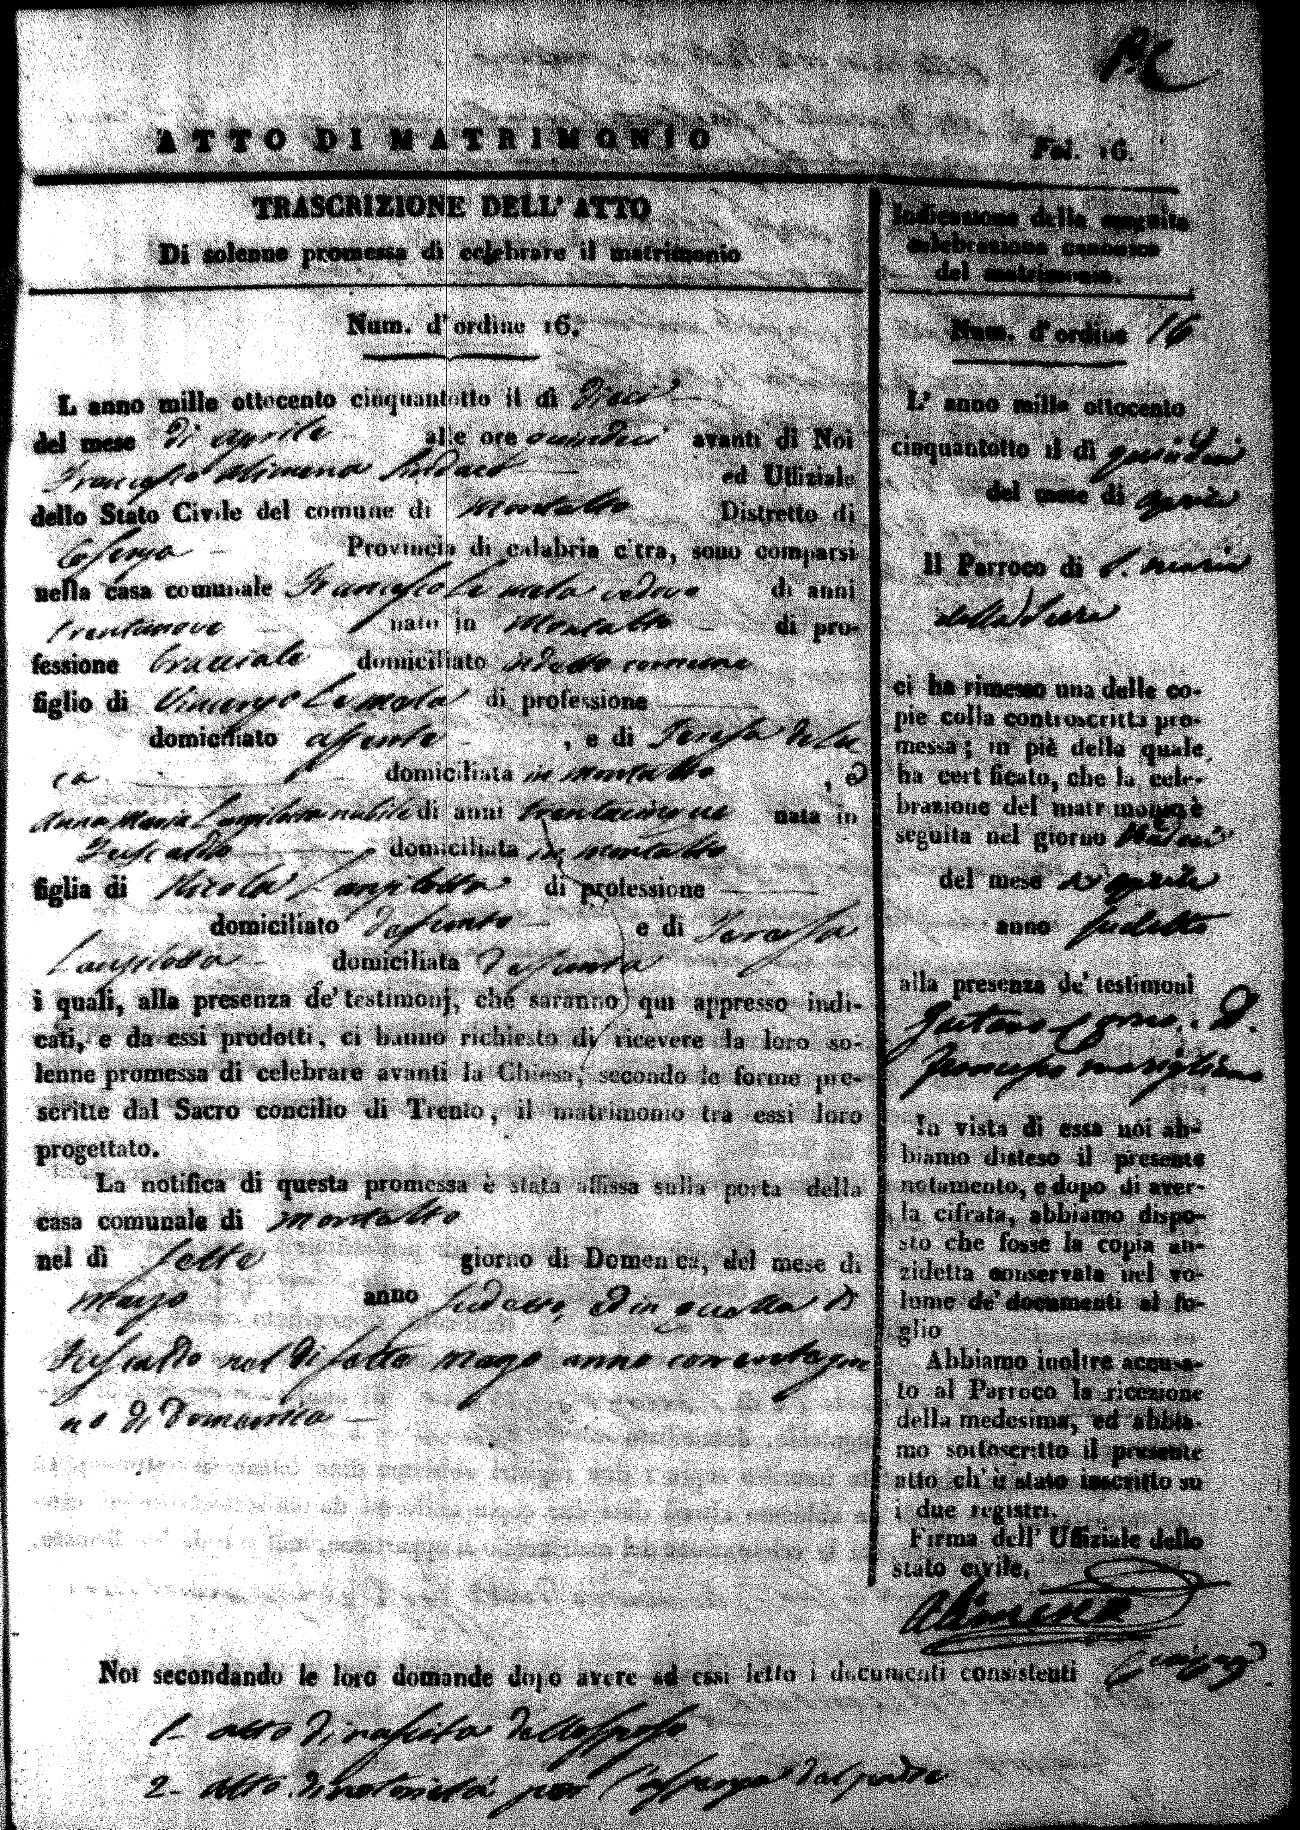 ATTO DI MATRIMONIO
Fol. 16.
TRASCRIZIONE DELL' ATTO
Di solenne promessa di celebrare il matrimonio
Num. d'ordine 16.
L anno mille ottocento cinquantotto il dì dieci
del mese di aprile alle ore quindeci avanti di Noi
Francesco Alimena Sindaco ed Uffiziale
dello Stato Civile del comune di Montalto Distretto di
Cosenza Provincia di calabria citra, sono comparsi
nella casa comunale Francesco Le mola vedovo di anni
trentanove nato in Montalto di pro-
fessione bracciale domiciliato in detto comune
figlio di Vincenzo Le mola di professione
domiciliato assente , e di Teresa de Lu
ca domiciliata in Montalto , e
Anna Maria nubile di anni trentacinque nata in
Fuscaldo domiciliata in Montalto
figlia di Nicola di professione
domiciliato defunto e di
domiciliata defunta
i quali, alla presenza de' testimonj, che saranno qui appresso indi-
cati, e da essi prodotti, ci hanno richiesto di ricevere la loro so-
lenne promessa di celebrare avanti la Chiesa, secondo le forme pre-
scritte dal Sacro concilio di Trento, il matrimonio tra essi loro
progettato.
La notifica di questa promessa è stata affissa sulla porta della
casa comunale di Montalto
nel dì sette giorno di Domenica, del mese di
marzo anno sudetto, ed in quella di
Fuscaldo nel dì sette marzo anno corrente gior
no di Domenica
Indicazione della seguita
celebrazione canonica
del matrimonio.
Num. d'ordine 16
L' anno mille ottocento
cinquantotto il dì quindeci
del mese di aprile
Il Parroco di S. Maria
della Serra
ci ha rimesso una delle co-
pie colla controscritta pro-
messa; in piè della quale
ha certificato, che la cele-
brazione del matrimonio è
seguita nel giorno
del mese aprile
anno sudetto
alla presenza de' testimoni
Gaetano
Francesco
In vista di essa noi ab-
biamo disteso il presente
notamento, e dopo di aver-
la cifrata, abbiamo dispo-
sto che fosse la copia an-
zidetta conservata nel vo-
lume de' documenti al fo-
glio
Abbiamo inoltre accusa-
to al Parroco la ricezione
della medesima, ed abbia-
mo sottoscritto il presente
atto ch' è stato inscritto su
i due registri.
Firma dell' Uffiziale dello
stato civile.
Alimena
Noi secondando le loro domande dopo avere ad essi letto i documenti consistenti
1- atto di nascita dello sposo
2- atto di notorietà per l'assenza del padre